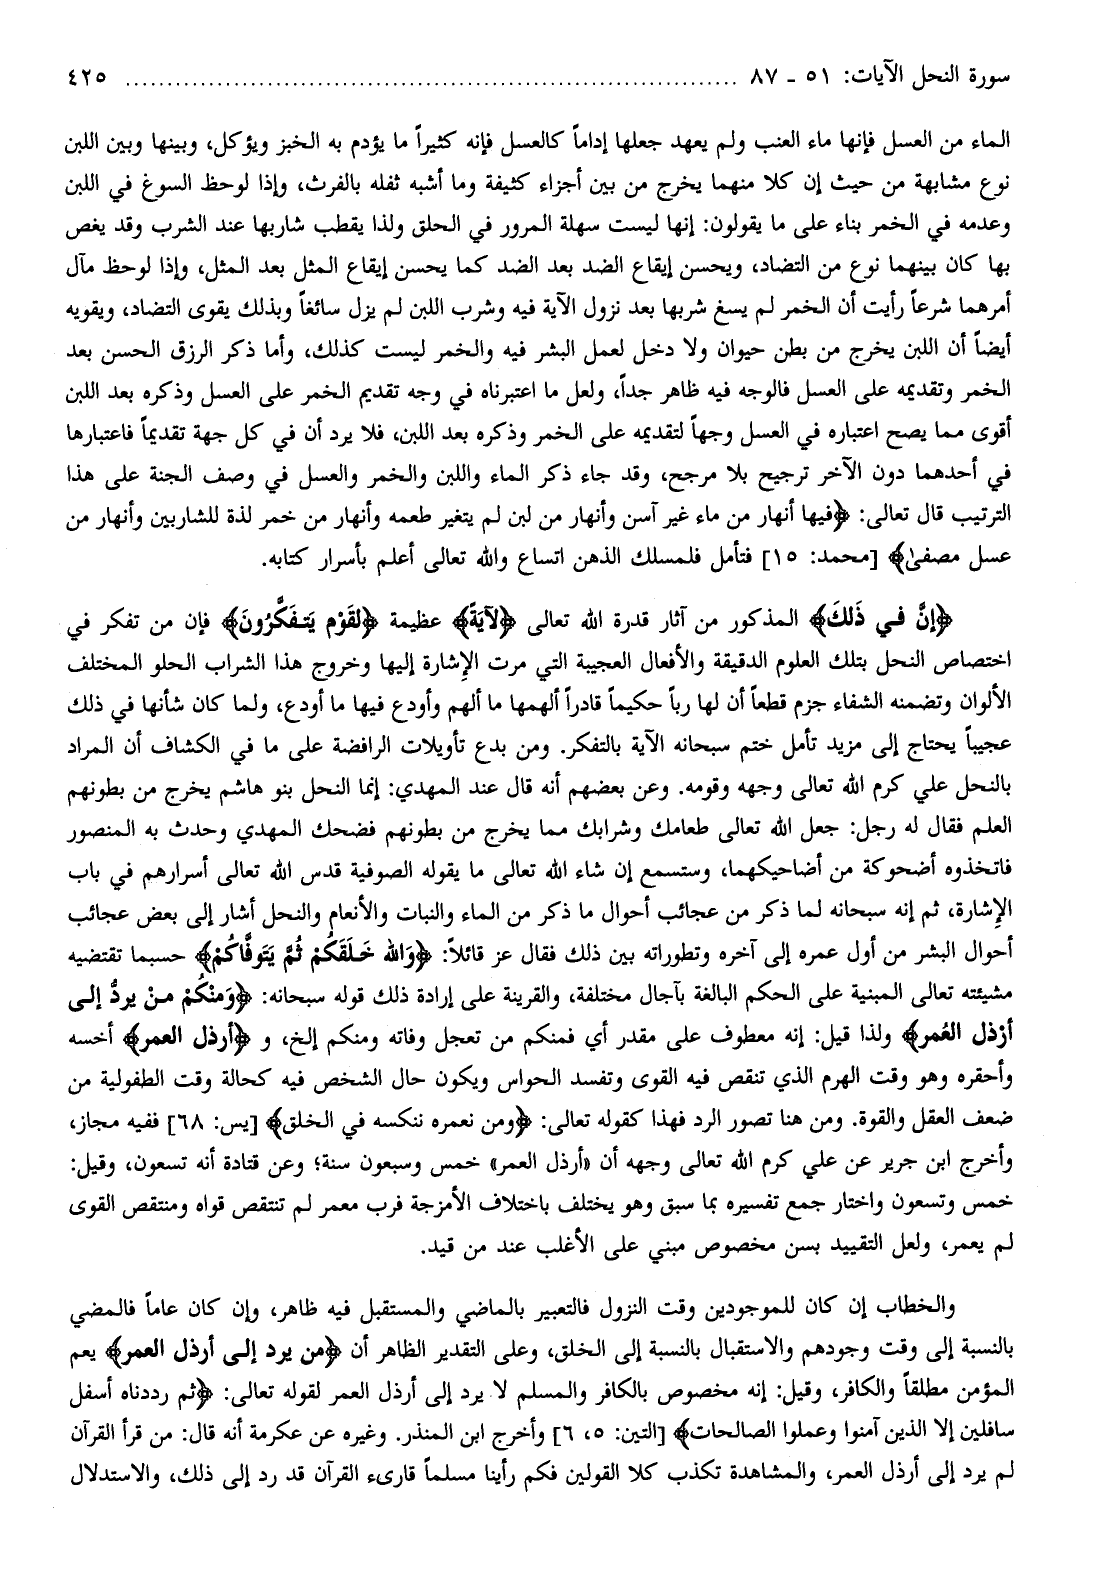 سورة النحل الآيات: ٥١ - ٨٧ ........................................................................ ٤٢٥
الماء من العسل فإنها ماء العنب ولم يعهد جعلها إداماً كالعسل فإنه كثيراً ما يؤدم به الخبز ويؤكل، وبينها وبين اللبن
نوع مشابهة من حيث إن كلا منهما يخرج من بين أجزاء كثيفة وما أشبه ثفله بالفرث، وإذا لوحظ السوغ في اللبن
وعدمه في الخمر بناء على ما يقولون: إنها ليست سهلة المرور في الحلق ولذا يقطب شاربها عند الشرب وقد يغص
بها كان بينهما نوع من التضاد، ويحسن إيقاع الضد بعد الضد كما يحسن إيقاع المثل بعد المثل، وإذا لوحظ مآل
أمرهما شرعاً رأيت أن الخمر لم يسغ شربها بعد نزول الآية فيه وشرب اللبن لم يزل سائغاً وبذلك يقوى التضاد، ويقويه
أيضاً أن اللبن يخرج من بطن حيوان ولا دخل لعمل البشر فيه والخمر ليست كذلك، وأما ذكر الرزق الحسن بعد
الخمر وتقديمه على العسل فالوجه فيه ظاهر جداً، ولعل ما اعتبرناه في وجه تقديم الخمر على العسل وذكره بعد اللبن
أقوى مما يصح اعتباره في العسل وجهاً لتقديمه على الخمر وذكره بعد اللبن، فلا يرد أن في كل جهة تقديماً فاعتبارها
في أحدهما دون الآخر ترجيح بلا مرجح، وقد جاء ذكر الماء واللبن والخمر والعسل في وصف الجنة على هذا
الترتيب قال تعالى: ﴿فيها أنهار من ماء غير آسن وأنهار من لبن لم يتغير طعمه وأنهار من خمر لذة للشاربين وأنهار من
عسل مصفىٰ﴾ [محمد: ١٥] فتأمل فلمسلك الذهن اتساع والله تعالى أعلم بأسرار كتابه.
﴿إنَّ في ذَلكَ﴾ المذكور من آثار قدرة الله تعالى ﴿لآيَةً﴾ عظيمة ﴿لقَوْم يَتَفَكَّرُونَ﴾ فإن من تفكر في
اختصاص النحل بتلك العلوم الدقيقة والأفعال العجيبة التي مرت الإشارة إليها وخروج هذا الشراب الحلو المختلف
الألوان وتضمنه الشفاء جزم قطعاً أن لها رباً حكيماً قادراً ألهمها ما ألهم وأودع فيها ما أودع، ولما كان شأنها في ذلك
عجيباً يحتاج إلى مزيد تأمل ختم سبحانه الآية بالتفكر. ومن بدع تأويلات الرافضة على ما في الكشاف أن المراد
بالنحل علي كرم الله تعالى وجهه وقومه. وعن بعضهم أنه قال عند المهدي: إنما النحل بنو هاشم يخرج من بطونهم
العلم فقال له رجل: جعل الله تعالى طعامك وشرابك مما يخرج من بطونهم فضحك المهدي وحدث به المنصور
فاتخذوه أضحوكة من أضاحيكهما، وستسمع إن شاء الله تعالى ما يقوله الصوفية قدس الله تعالى أسرارهم في باب
الإشارة، ثم إنه سبحانه لما ذكر من عجائب أحوال ما ذكر من الماء والنبات والأنعام والنحل أشار إلى بعض عجائب
أحوال البشر من أول عمره إلى آخره وتطوراته بين ذلك فقال عز قائلاً: ﴿وَالله خَلَقَكُمْ ثُمَّ يَتَوفَّاكُمْ﴾ حسبما تقتضيه
مشيئته تعالى المبنية على الحكم البالغة بآجال مختلفة، والقرينة على إرادة ذلك قوله سبحانه: ﴿وَمنْكُمْ مـنْ يردُّ إلى
أرْذل العُمر﴾ ولذا قيل: إنه معطوف على مقدر أي فمنكم من تعجل وفاته ومنكم إلخ، و ﴿أرذل العمر﴾ أخسه
وأحقره وهو وقت الهرم الذي تنقص فيه القوى وتفسد الحواس ويكون حال الشخص فيه كحالة وقت الطفولية من
ضعف العقل والقوة. ومن هنا تصور الرد فهذا كقوله تعالى: ﴿ومن نعمره ننكسه في الخلق﴾ [يس: ٦٨] ففيه مجاز،
وأخرج ابن جرير عن علي كرم الله تعالى وجهه أن «أرذل العمر» خمس وسبعون سنة؛ وعن قتادة أنه تسعون، وقيل:
خمس وتسعون واختار جمع تفسيره بما سبق وهو يختلف باختلاف الأمزجة فرب معمر لم تنتقص قواه ومنتقص القوى
لم يعمر، ولعل التقييد بسن مخصوص مبني على الأغلب عند من قيد.
والخطاب إن كان للموجودين وقت النزول فالتعبير بالماضي والمستقبل فيه ظاهر، وإن كان عاماً فالمضي
بالنسبة إلى وقت وجودهم والاستقبال بالنسبة إلى الخلق، وعلى التقدير الظاهر أن ﴿من يرد إلى أرذل العمر﴾ يعم
المؤمن مطلقاً والكافر، وقيل: إنه مخصوص بالكافر والمسلم لا يرد إلى أرذل العمر لقوله تعالى: ﴿ثم رددناه أسفل
سافلين إلا الذين آمنوا وعملوا الصالحات﴾ [التين: ٥، ٦] وأخرج ابن المنذر. وغيره عن عكرمة أنه قال: من قرأ القرآن
لم يرد إلى أرذل العمر، والمشاهدة تكذب كلا القولين فكم رأينا مسلماً قارىء القرآن قد رد إلى ذلك، والاستدلال